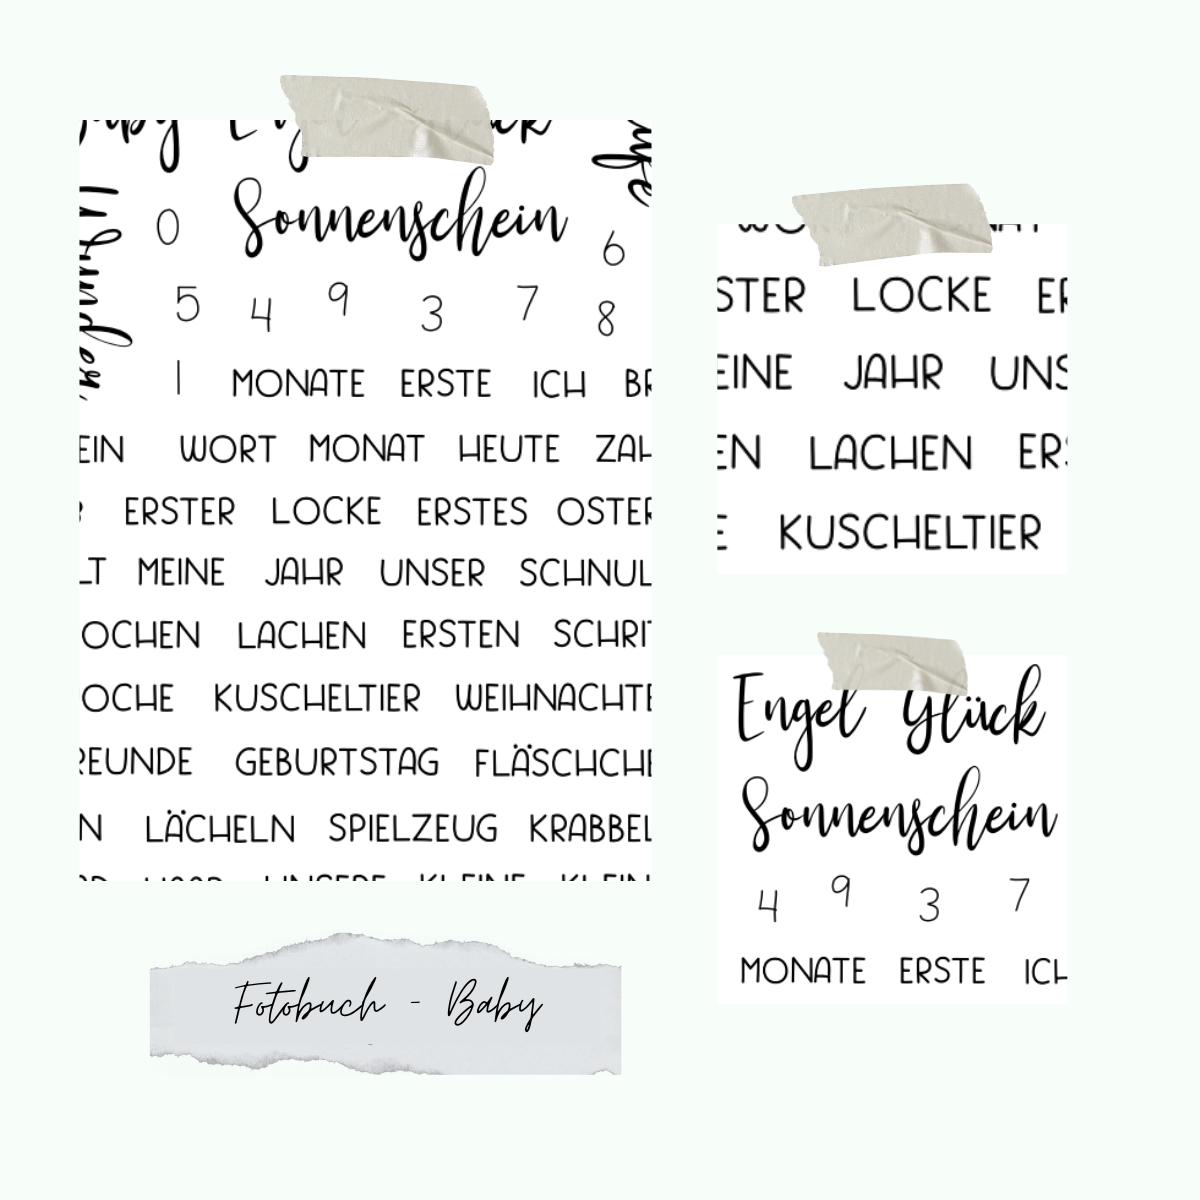 Sonnenschein
Wunder
0
6
5 4 9 3 7 8
1 MONATE ERSTE ICH BR
EIN WORT MONAT HEUTE ZAH
ERSTER LOCKE ERSTES OSTER
LT MEINE JAHR UNSER SCHNUL
OCHEN LACHEN ERSTEN SCHRIT
OCHE KUSCHELTIER WEIHNACHTE
REUNDE GEBURTSTAG FLÄSCHCHE
N LÄCHELN SPIELZEUG KRABBEL
UNSERE KLEINE KLEIN
Fotobuch - Baby
STER LOCKE ER
EINE JAHR UNS
EN LACHEN ERS
E KUSCHELTIER
Engel Glück
Sonnenschein
4 9 3 7
MONATE ERSTE ICH